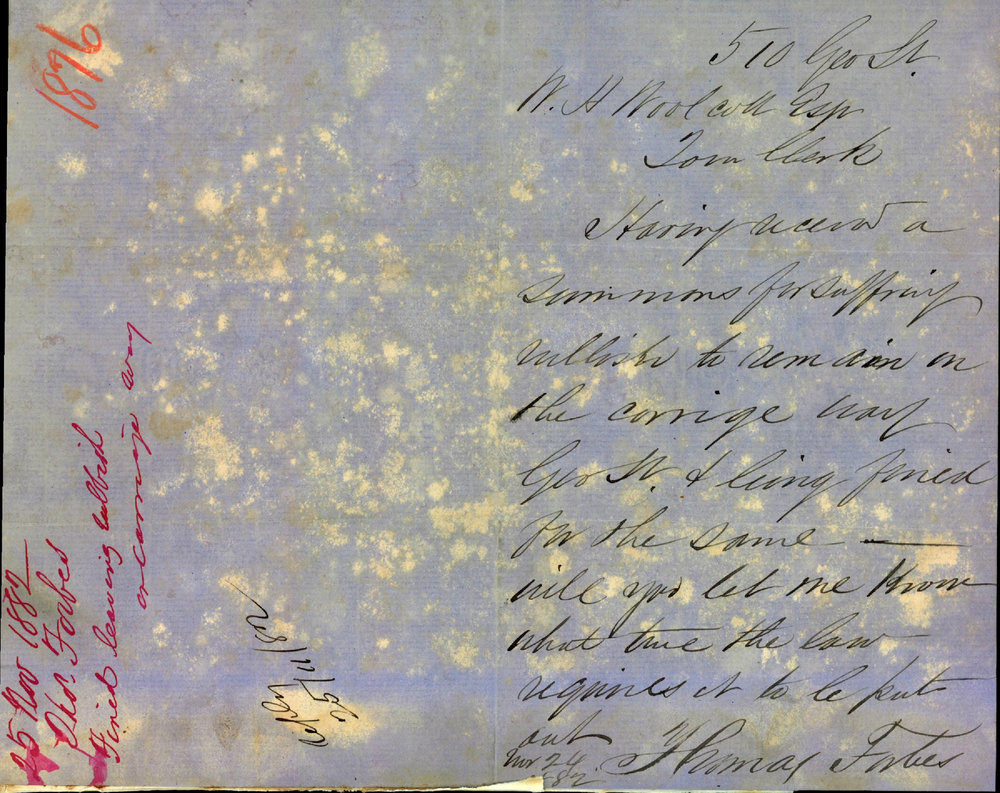 510 Geo St.
W. H Woolcott Esqr
Town Clerk
Having received a
summons for suffring
rubbish to remain on
the carrige way
Geo St. & being fined
for the same —
will you let me know
what time the law
requires it to be put
out
Nov 24
1882
Thomas Forbes
1876
25 Nov 1882
Thos. Forbes
Fined leaving rubbish
on carriage way
25/11/82